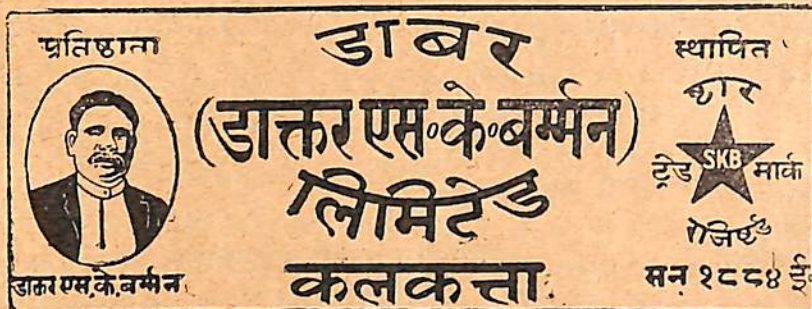 प्रतिष्ठाता
डाक्तर एस. के. बर्म्मन
डाबर
(डाक्तर एस॰के॰बर्म्मन)
लिमिटेड
कलकत्ता
स्थापित
ष्टार
ट्रेड SKB मार्क
रेजिष्टर्ड
सन् १८८४ ई॰